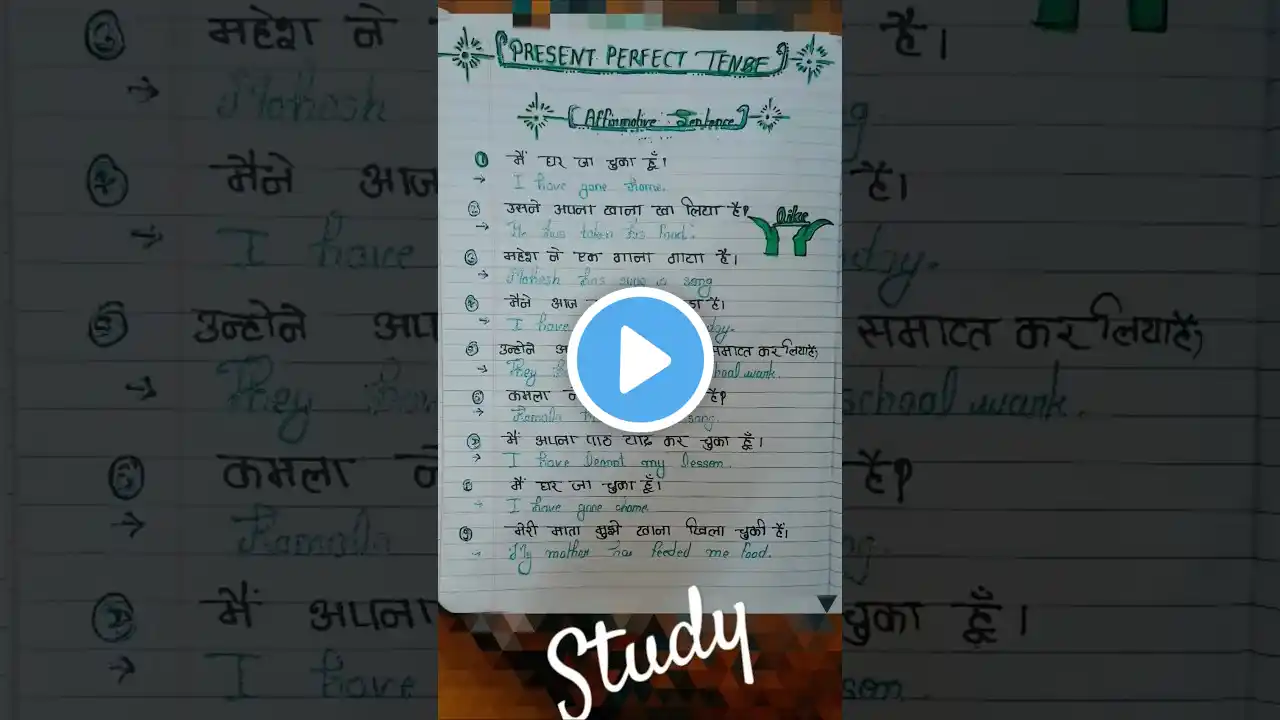 PRESENT PERFECT TENSE
Affirmative Sentence
① मैं घर जा चुका हूँ।
→ I have gone home.
② उसने अपना खाना खा लिया है?
→ He has taken his food.
③ महेश ने एक गाना गाया है।
→ Mahesh has sung a song
④ मैने आज है।
→ I have
⑤ उन्होने समाप्त कर लिया है,
→ They school wark.
⑥ कमला है?
→ Kamala song.
⑦ मैं अपना पाठ याद कर चुका हूँ।
→ I have learnt my lesson.
⑧ मैं घर जा चुका हूँ।
→ I have gone home
⑨ मेरी माता मुझे खाना खिला चुकी हैं।
→ My mother has feeded me food.
Study